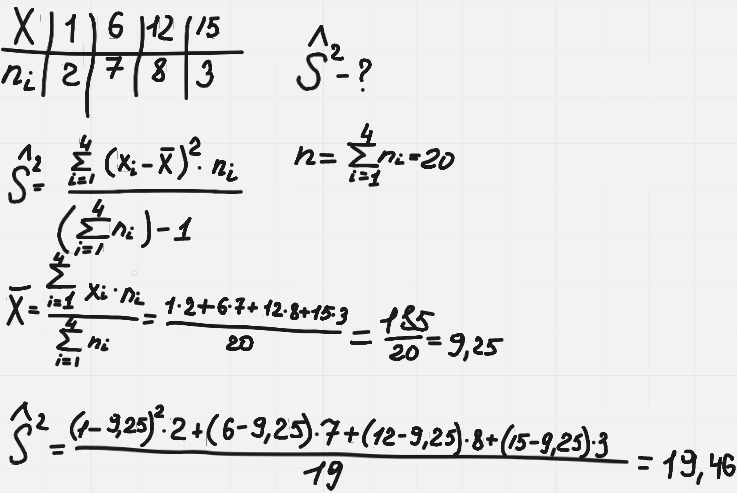 X | 1 | 6 | 12 | 15
nᵢ | 2 | 7 | 8 | 3
Ŝ² - ?
n = ∑_{i=1}^{4} nᵢ = 20
Ŝ² = (∑_{i=1}^{4} (xᵢ - x̄)² · nᵢ) / ((∑_{i=1}^{4} nᵢ) - 1)
X̄ = (∑_{i=1}^{4} xᵢ · nᵢ) / (∑_{i=1}^{4} nᵢ) = (1·2+6·7+12·8+15·3) / 20 = 185/20 = 9,25
Ŝ² = ((1-9,25)²·2+(6-9,25)·7+(12-9,25)·8+(15-9,25)·3) / 19 = 19,46